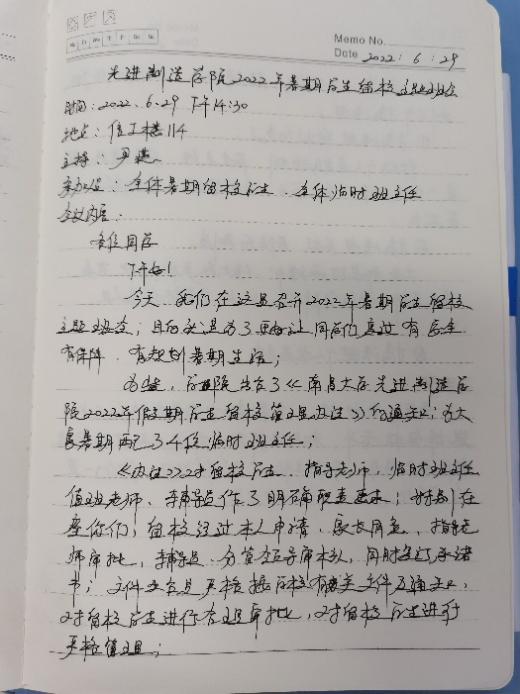 Memo No.
Date 2022.6.29
先进制造学院2022年暑期学生留校主题班会
时间:2022.6.29 下午14:30
地点:信工楼114
主持:尹燕
参加人员:全体暑期留校学生、全体临时班主任
会议内容:
各位同学
下午好!
今天,我们在这里召开2022年暑期学生留校
主题班会;目的就是为了更好让同学们度过有安全
有保障、有规划暑期生活;
为此,学院出台了《南昌大学先进制造学
院2022年假期学生留校管理办法》的通知;为大
家暑期配了4位临时班主任;
《办法》对留校学生、指导老师、临时班主任
值班老师、辅导员作了明确职责要求;特别在
座你们,留校经过本人申请、家长同意、指导老
师审批,辅导员、分管领导审本批,同时签了承诺
书;文件要求是严格按学校有关文件及通知,
对留校学生进行合理审批,对留校学生进行
严格管理;